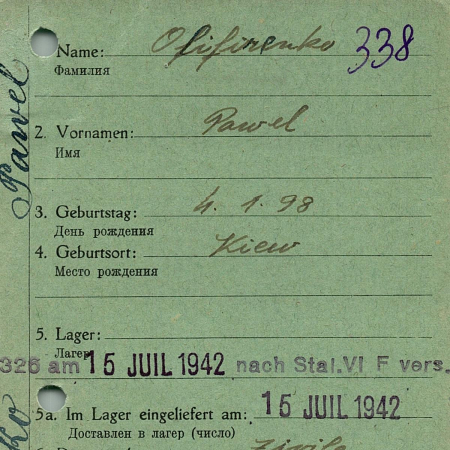 Name: Olifirenko 338
Фамилия
2. Vornamen: Pawel
Имя
3. Geburtstag: 4. 1. 98
День рождения
4. Geburtsort: Kiew
Место рождения
5. Lager:
Лагер
326 am 15 JUIL 1942 nach Stal. VI F vers.
5a. Im Lager eingeliefert am: 15 JUIL 1942
Доставлен в лагер (число)
Pawel